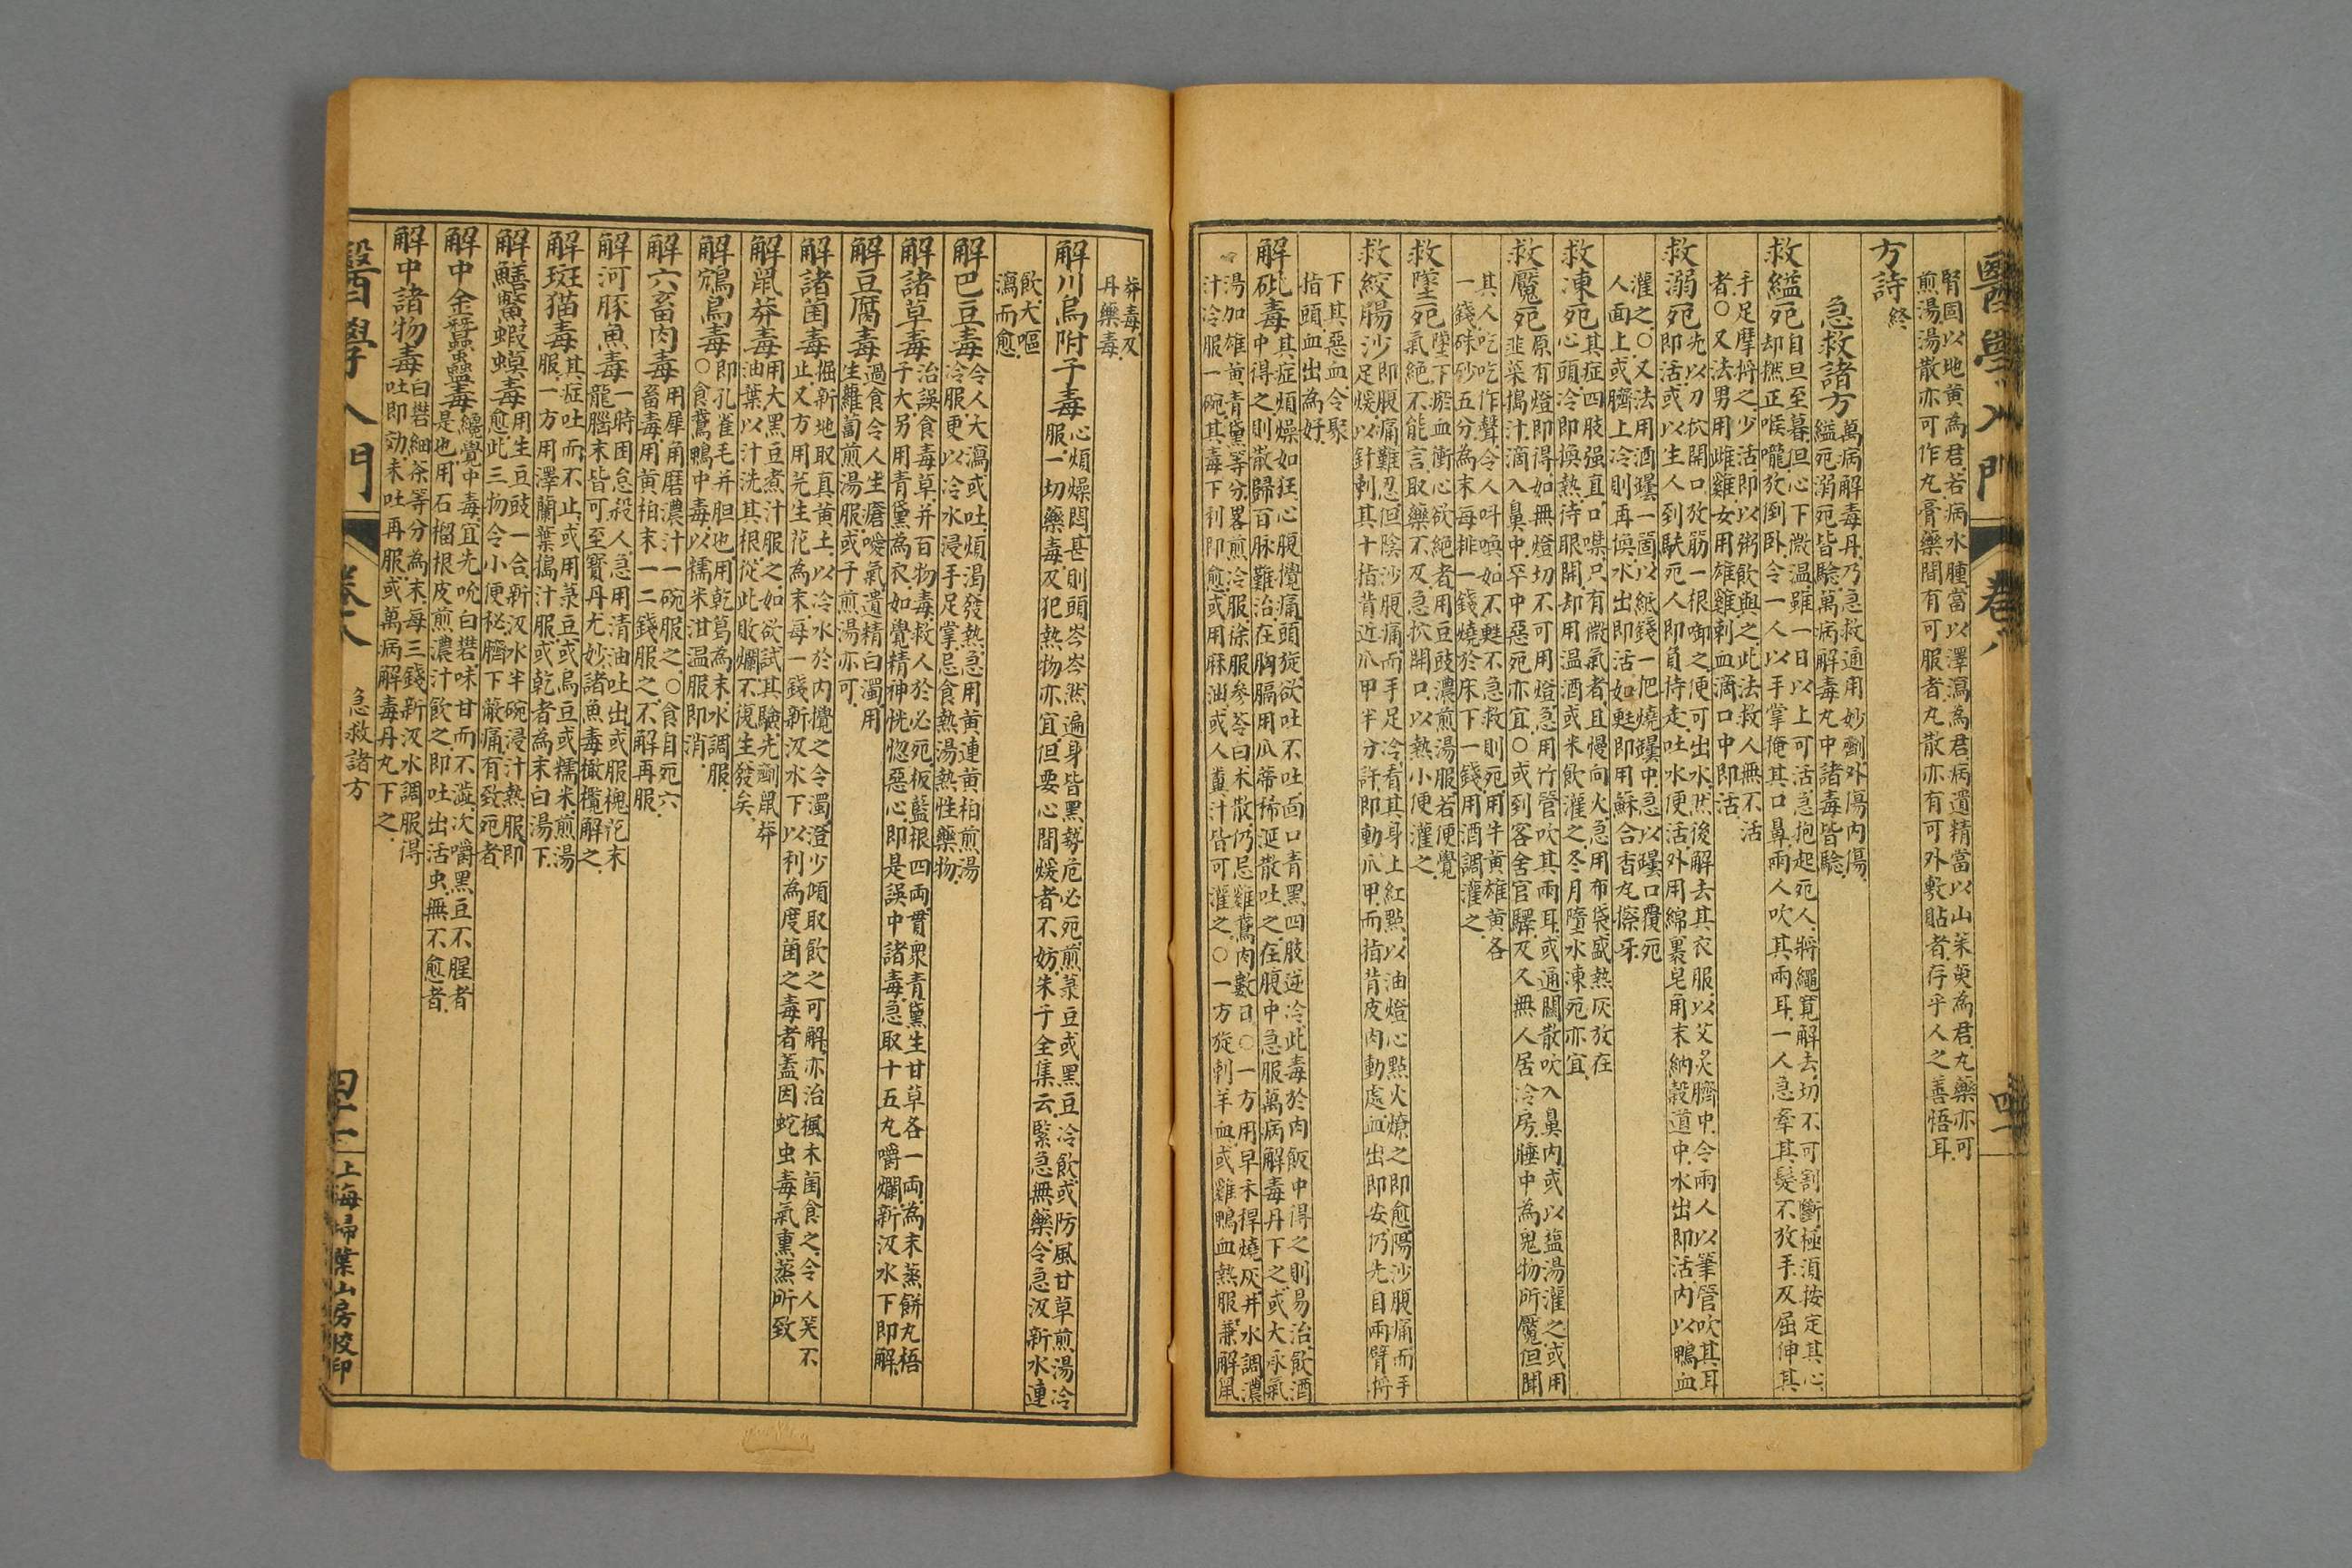 醫學入門 卷八 四一
腎固以地黃為君若病水腫當以澤瀉為君病遺精當以山茱萸為君丸藥亦可
煎湯湯散亦可作丸膏藥間有可服者丸散亦有可外敷貼者存乎人之善悟耳
方詩終
急救諸方
萬病解毒丹乃急救通用妙劑外傷內傷
縊死溺死皆驗萬病解毒丸中諸毒皆驗
救縊死
自旦至暮但心下微溫雖一日以上可活急抱起死人將繩寬解去切不可割斷極須按定其心
却撚正喉嚨放倒卧令一人以手掌掩其口鼻兩人吹其兩耳一人急牽其髮不放手及屈伸其
手足摩捋之少活即以粥飲與之此法救人無不活
者○又法男用雌雞女用雄雞刺血滴口中即活
救溺死
先以刀扻開口放筯一根啣之便可出水然後解去其衣服以艾炙臍中令兩人以筆管吹其耳
即活或以生人到馱死人即負持走吐水便活外用綿裹皂角末納穀道中水出即活內以鴨血
灌之○又法用酒罎一箇以紙錢一把燒罎中急以罎口覆死
人面上或臍上冷則再換水出即活如甦即用蘇合香丸擦牙
救凍死
其症四肢强直口噤只有微氣者且慢向火急用布袋盛熱灰放在
心頭冷即換熱待眼開却用溫酒或米飲灌之冬月墮水凍死亦宜
救魘死
原有燈即得如無燈切不可用燈急用竹管吹其兩耳或通關散吹入鼻內或以塩湯灌之或用
韭菜搗汁滴入鼻中卒中惡死亦宜○或到客舍官驛及久無人居冷房睡中為鬼物所魘但聞
其人吃吃作聲令人呌喚如不甦不急救則死用牛黃雄黃各
一錢硃砂五分為末每挑一錢燒於床下一錢用酒調灌之
救墜死
墜下瘀血衝心欲絕者用豆豉濃煎湯服若便覺
氣絕不能言取藥不及急扻開口以熱小便灌之
救絞腸沙
即腹痛難忍但陰沙腹痛而手足冷看其身上紅點以油燈心點火燎之即愈陽沙腹痛而手
足煖以針刺其十指背近爪甲半分許即動爪甲而指背皮肉動處血出即安仍先自兩臂捋
下其惡血令聚
指頭血出為好
解砒毒
其症煩燥如狂心腹攪痛頭旋欲吐不吐面口青黑四肢逆冷此毒於肉飯中得之則易治飲酒
中得之則散歸百脉難治在胸膈用瓜蒂稀涎散吐之在腹中急服萬病解毒丹下之或大承氣
湯加雄黃青黛等分畧煎冷服徐服參苓白朮散仍忌雞鵞肉數日○一方用早禾稈燒灰井水調濃
汁冷服一碗其毒下利即愈或用麻油或人糞汁皆可灌之○一方旋刺羊血或雞鴨血熱服兼解鼠
莽毒及
丹藥毒
解川烏附子毒
心煩燥悶甚則頭岑岑然遍身皆黑勢危必死煎菉豆或黑豆冷飲或防風甘草煎湯冷
服一切藥毒及犯熱物亦宜但要心間煖者不妨朱千全集云緊急無藥令急汲新水連
飲大嘔
瀉而愈
解巴豆毒
令人大瀉或吐煩渴發熱急用黃連黃柏煎湯
冷服更以冷水浸手足掌忌食熱湯熱性藥物
解諸草毒
治誤食毒草并百物毒救人於必死板藍根四兩貫衆青黛生甘草各一兩為末蒸餅丸梧
子大另用青黛為衣如覺精神恍惚惡心即是誤中諸毒急取十五丸嚼爛新汲水下即解
解豆腐毒
過食令人生瘡噯氣遺精白濁用
生蘿蔔煎湯服或子煎湯亦可
解諸菌毒
掘新地取真黃土以冷水於內攪之令濁澄少頃取飲之可解亦治楓木菌食之令人笑不
止又方用芫生花為末每一錢新汲水下以利為度菌之毒者蓋因蛇虫毒氣熏蒸所致
解鼠莽毒
用大黑豆煮汁服之如欲試其驗先劑鼠莽
油葉以汁洗其根從此敗爛不復生發矣
解鴆鳥毒
即孔雀毛并胆也用乾葛為末水調服
○食鵞鴨中毒以糯米泔溫服即消
解六畜肉毒
用犀角磨濃汁一碗服之○食自死六
畜毒用黃柏末一二錢服之不解再服
解河豚魚毒
一時困怠殺人急用清油吐出或服槐花末
龍腦末皆可至寶丹尤妙諸魚毒橄欖解之
解斑猫毒
其症吐而不止或用菉豆或烏豆或糯米煎湯
服一方用澤蘭葉搗汁服或乾者為末白湯下
解鱔鱉蝦蟆毒
用生豆豉一合新汲水半碗浸汁熱服即
愈此三物令小便秘臍下蔽痛有致死者
解中金蠶蠱毒
纔覺中毒宜先吮白礬味甘而不澁次嚼黑豆不腥者
是也用石榴根皮煎濃汁飲之即吐出活虫無不愈者
解中諸物毒
白礬細茶等分為末每三錢新汲水調服得
吐即効未吐再服或萬病解毒丹丸下之
醫學入門 卷八 急救諸方 四十一 上海掃葉山房校印